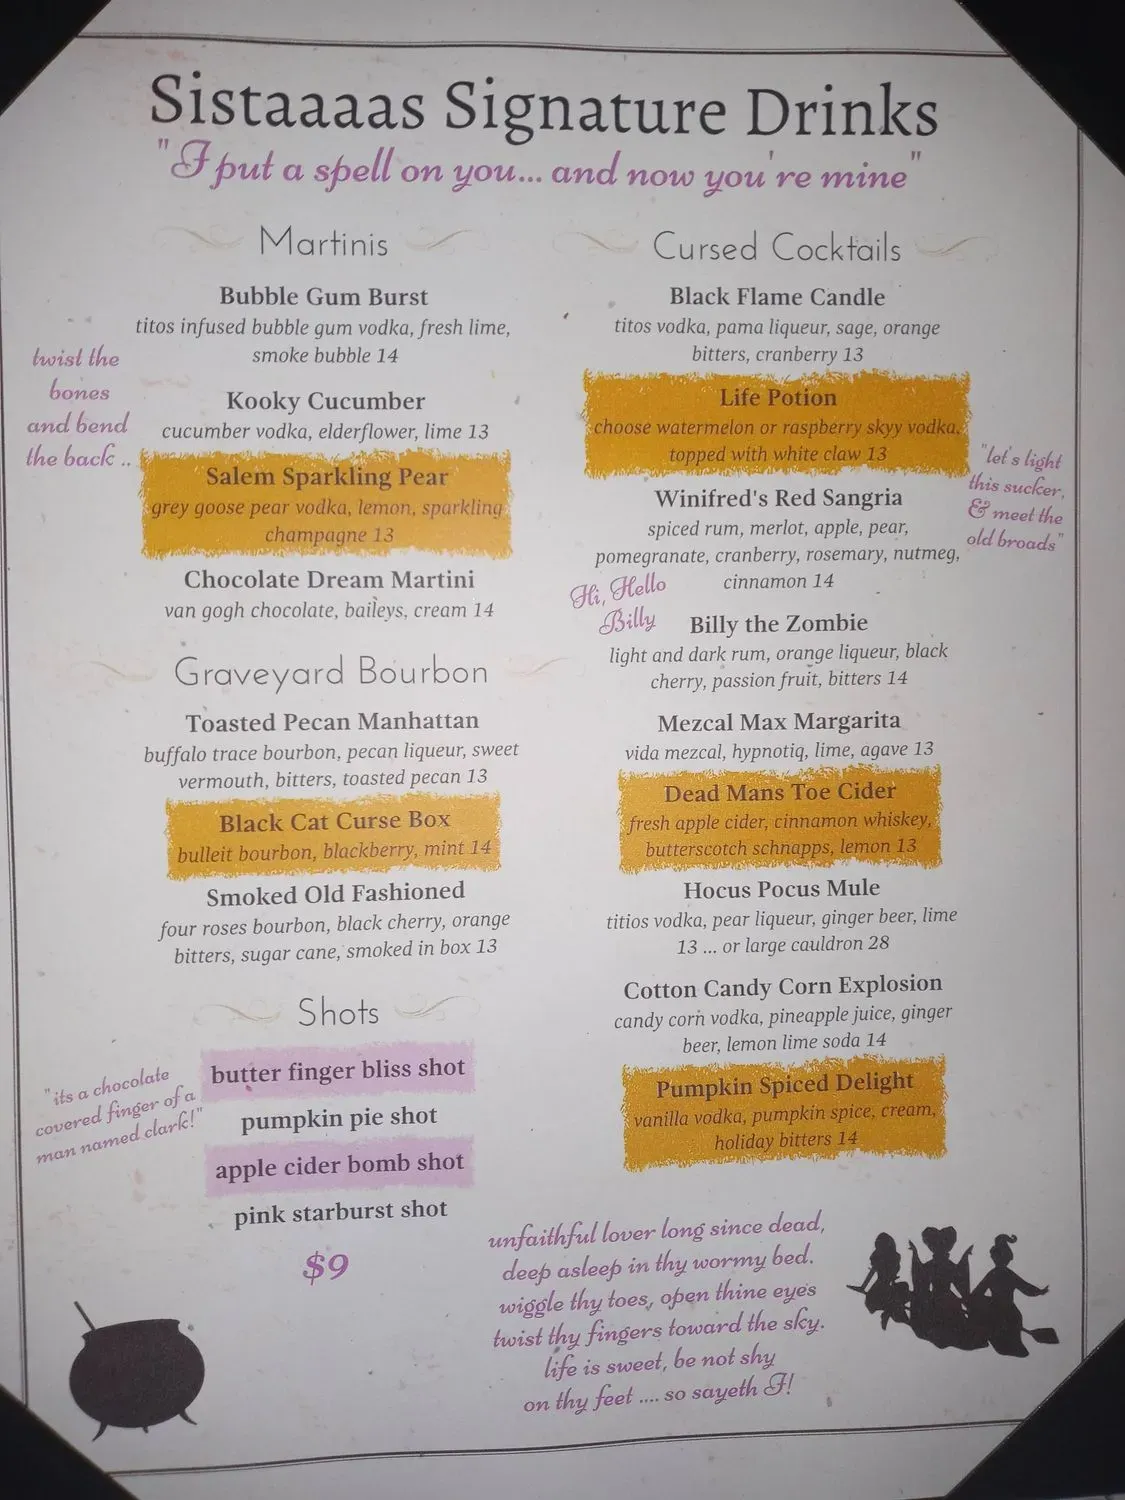 Sistaaaas Signature Drinks
"I put a spell on you... and now you're mine"
Martinis
Bubble Gum Burst
titos infused bubble gum vodka, fresh lime,
smoke bubble 14
twist the
bones
and bend
the back ..
Kooky Cucumber
cucumber vodka, elderflower, lime 13
Salem Sparkling Pear
grey goose pear vodka, lemon, sparkling
champagne 13
Chocolate Dream Martini
van gogh chocolate, baileys, cream 14
Graveyard Bourbon
Toasted Pecan Manhattan
buffalo trace bourbon, pecan liqueur, sweet
vermouth, bitters, toasted pecan 13
Black Cat Curse Box
bulleit bourbon, blackberry, mint 14
Smoked Old Fashioned
four roses bourbon, black cherry, orange
bitters, sugar cane, smoked in box 13
Shots
butter finger bliss shot
pumpkin pie shot
apple cider bomb shot
pink starburst shot
$9
"its a chocolate
covered finger of a
man named clark!"
Cursed Cocktails
Black Flame Candle
titos vodka, pama liqueur, sage, orange
bitters, cranberry 13
Life Potion
choose watermelon or raspberry skyy vodka,
topped with white claw 13
"let's light
this sucker,
& meet the
old broads"
Winifred's Red Sangria
spiced rum, merlot, apple, pear,
pomegranate, cranberry, rosemary, nutmeg,
cinnamon 14
Hi, Hello
Billy
Billy the Zombie
light and dark rum, orange liqueur, black
cherry, passion fruit, bitters 14
Mezcal Max Margarita
vida mezcal, hypnotiq, lime, agave 13
Dead Mans Toe Cider
fresh apple cider, cinnamon whiskey,
butterscotch schnapps, lemon 13
Hocus Pocus Mule
titios vodka, pear liqueur, ginger beer, lime
13 ... or large cauldron 28
Cotton Candy Corn Explosion
candy corn vodka, pineapple juice, ginger
beer, lemon lime soda 14
Pumpkin Spiced Delight
vanilla vodka, pumpkin spice, cream,
holiday bitters 14
unfaithful lover long since dead,
deep asleep in thy wormy bed.
wiggle thy toes, open thine eyes
twist thy fingers toward the sky.
life is sweet, be not shy
on thy feet .... so sayeth I!